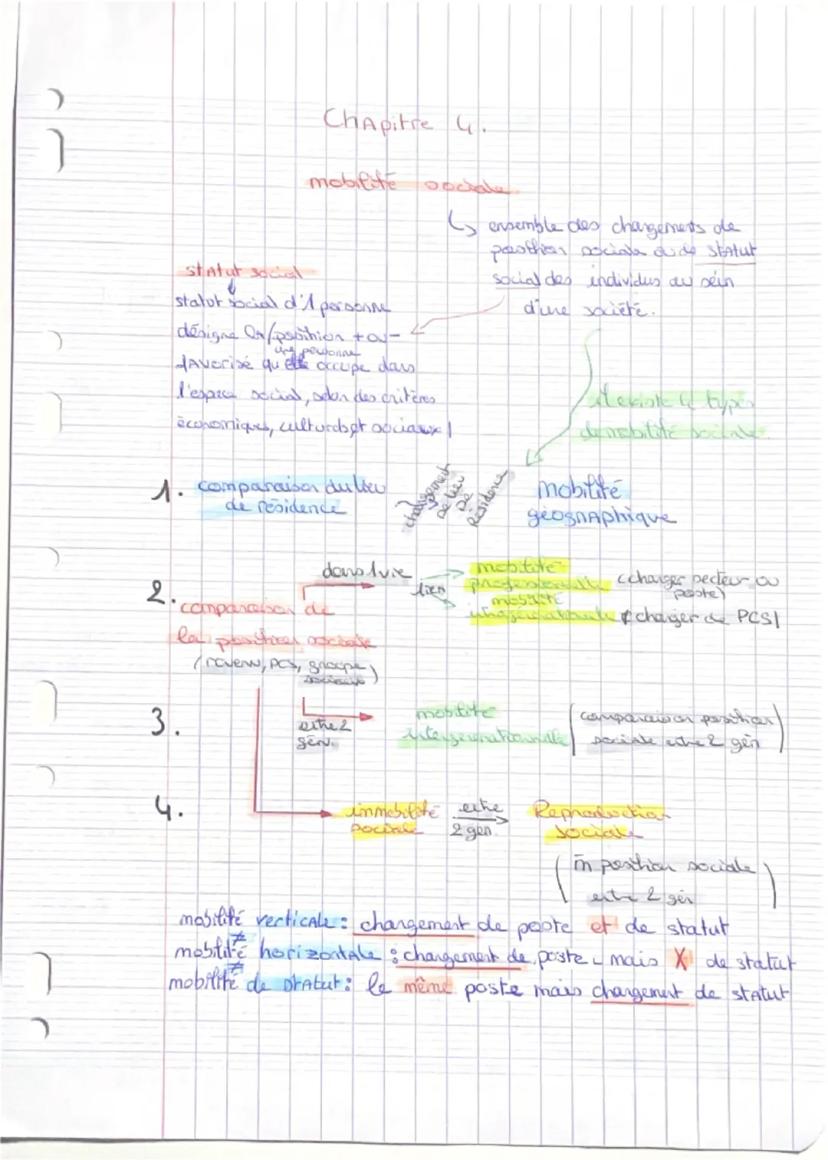 Chapitre 4.
mobilité sociale
↳ ensemble des changements de
position sociale ou de statut
social des individus au sein
d'une société.
statut social
statut social d'1 personne
désigne position + ou -
une personne
favorisé qu' occupe dans
l'espace social, selon des critères
économiques, culturels et sociaux
il existe 4 types
de mobilité sociale
1. comparaison du lieu
de résidence
changement
de lieu
de
résidence
mobilité
géographique
2. comparaison de
la position sociale
(revenu, PCS, groupe
sociaux)
dans 1 vie
lien
mobilité
professionnelle (changer secteur ou
poste)
mobilité
intragénérationnelle changer de PCS
3.
entre 2
gén.
mobilité
intergénérationnelle
(comparaison position
sociale entre 2 gén)
4.
immobilité
sociale
entre
2 gén.
Reproduction
sociale
(m̄ position sociale
entre 2 gén)
mobilité verticale : changement de poste et de statut
≠
mobilité horizontale : changement de poste mais X de statut
≠
mobilité de statut : le même poste mais changement de statut